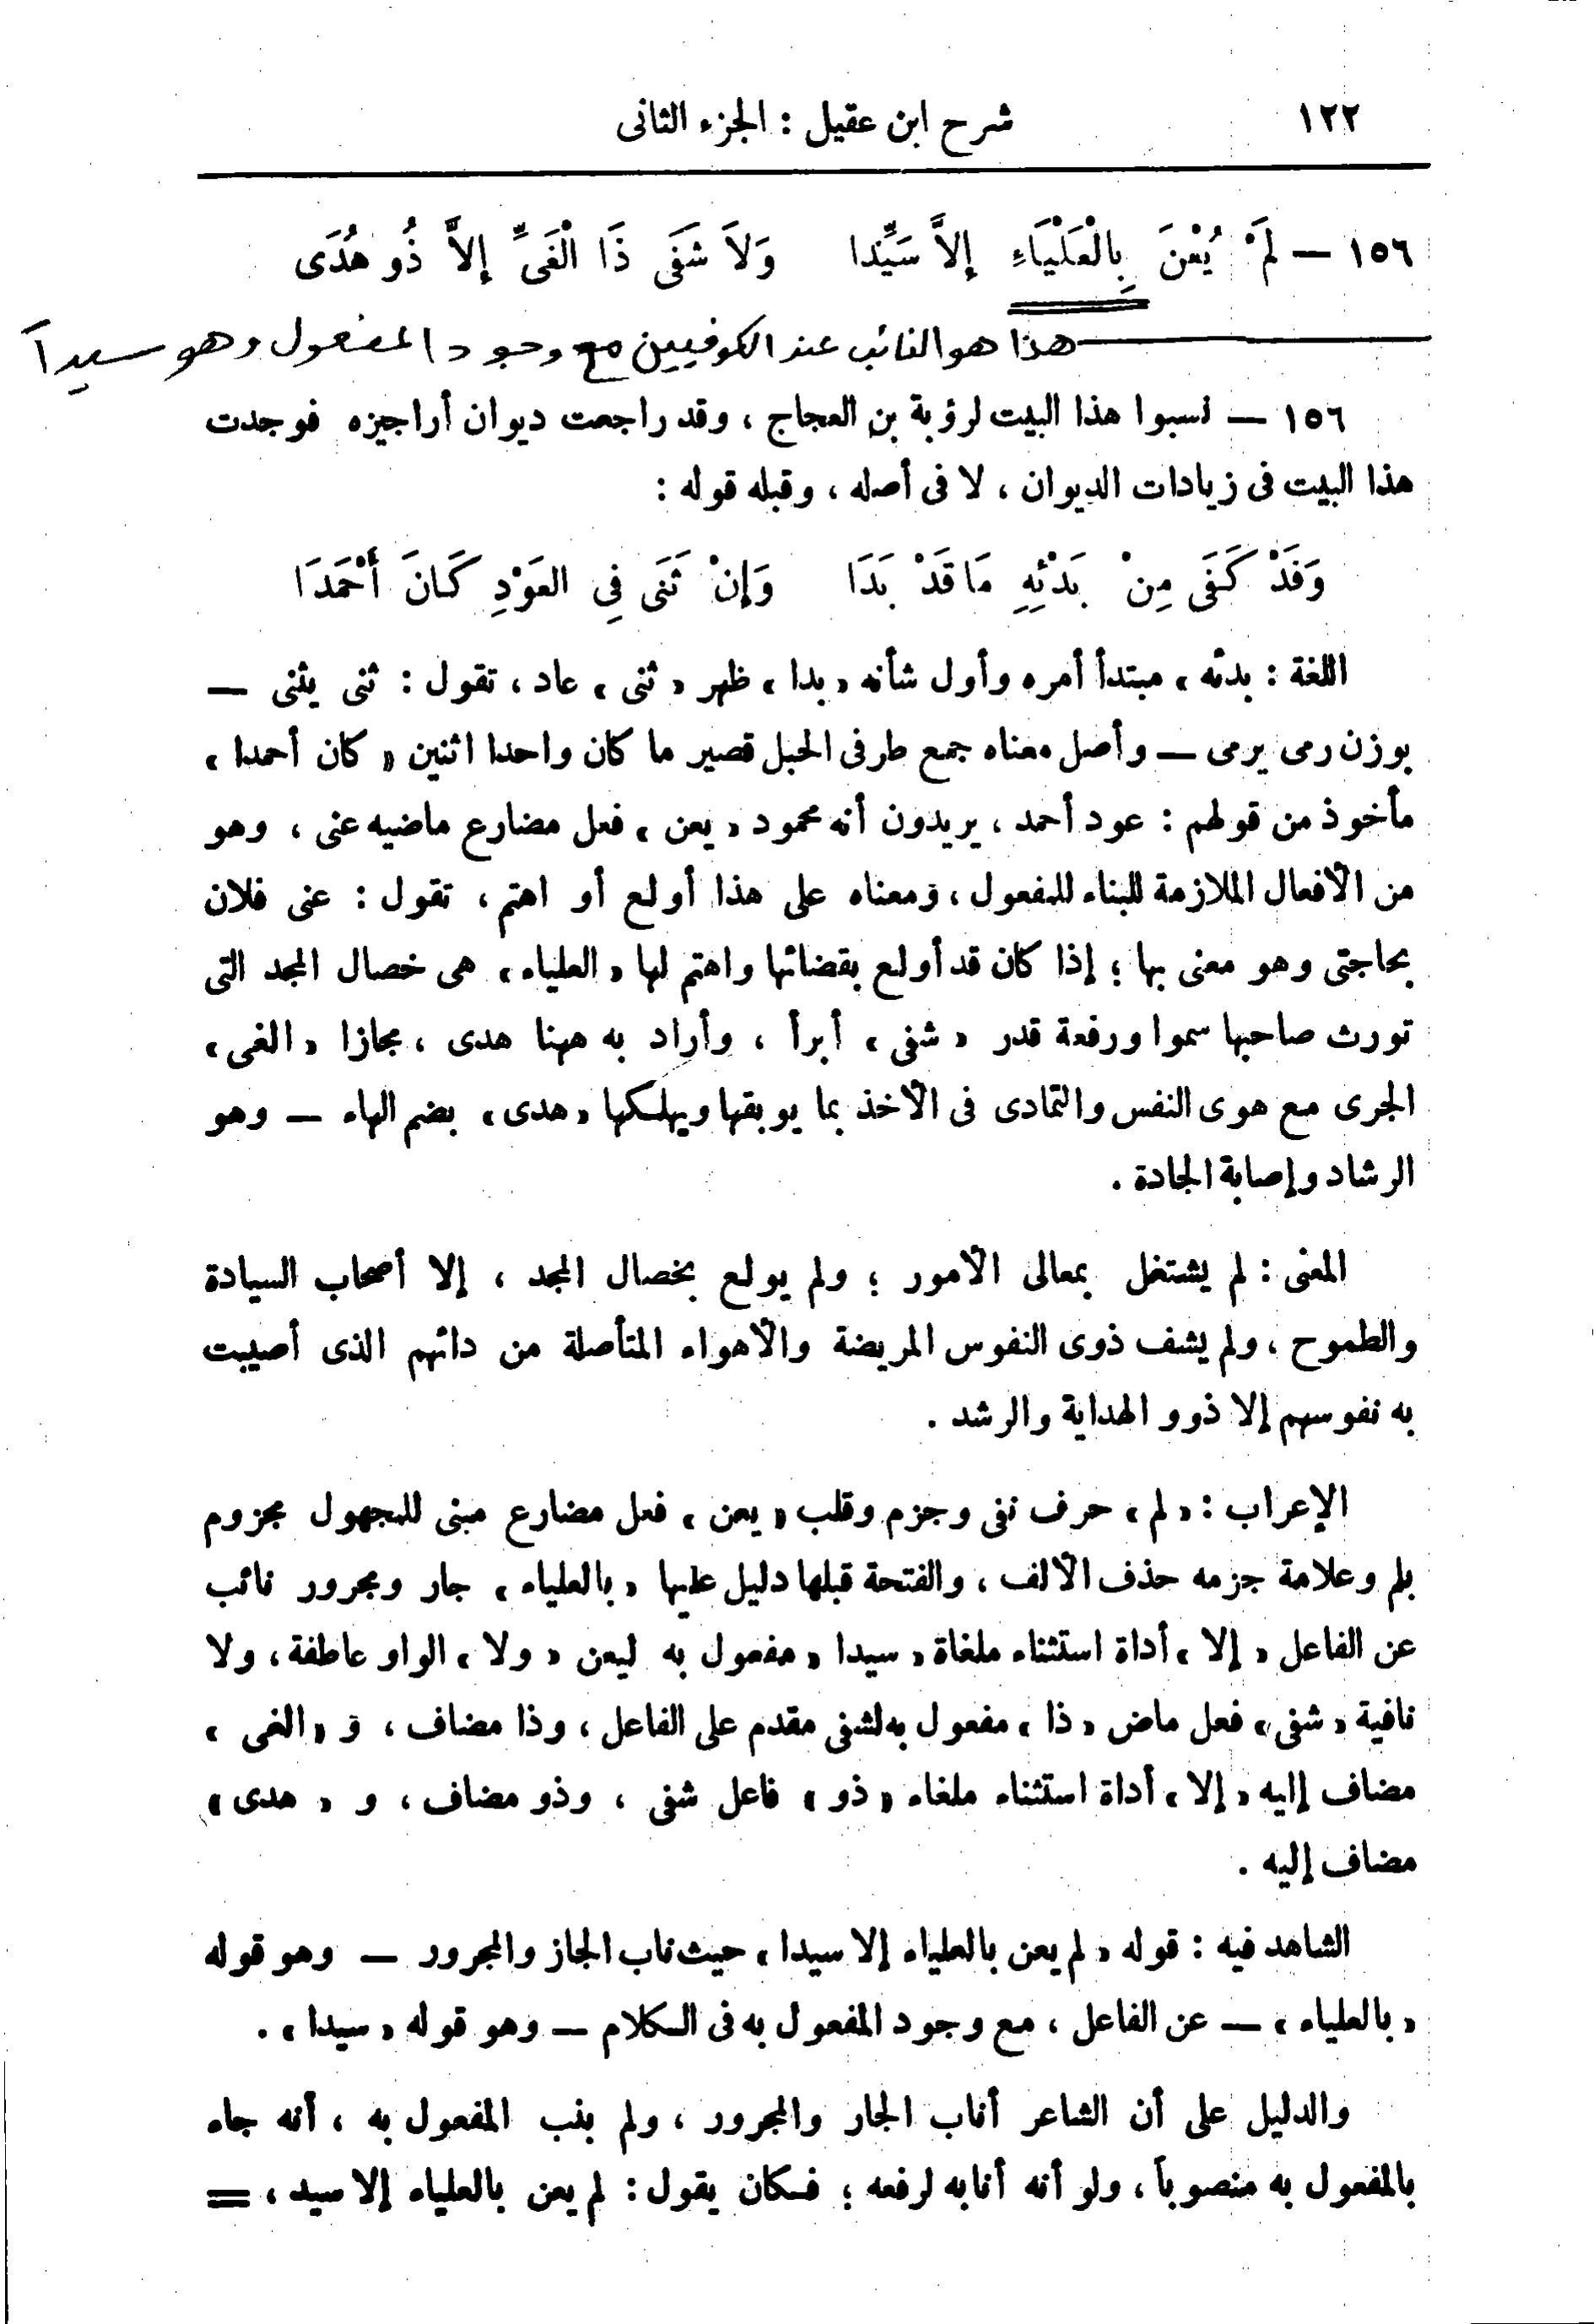 ١٢٢ شرح ابن عقيل : الجزء الثانى
١٥٦ — لَمْ يُعْنَ بِالْعَلْيَاءِ إِلاَّ سَيِّدَا وَلاَ شَفَى ذَا الْغَىِّ إِلاَّ ذُو هُدَى
هذا هو النائب عند الكوفيين مع وجود المفعول وهو سيداً
١٥٦ — نسبوا هذا البيت لرؤبة بن العجاج ، وقد راجعت ديوان أراجيزه فوجدت
هذا البيت فى زيادات الديوان ، لا فى أصله ، وقبله قوله :
وَقَدْ كَفَى مِنْ بَدْئِهِ مَا قَدْ بَدَا وَإِنْ ثَنَى فِى العَوْدِ كَانَ أَحْمَدَا
اللغة : بدئه ، مبتدأ أمره وأول شأنه « بدا » ظهر « ثنى » عاد ، تقول : ثنى يثنى —
بوزن رمى يرمى — وأصل معناه جمع طرفى الحبل قصير ما كان واحدا اثنين « كان أحمدا »
مأخوذ من قولهم : عود أحمد ، يريدون أنه محمود « يعن » فعل مضارع ماضيه عنى ، وهو
من الأفعال الملازمة للبناء للمفعول ، ومعناه على هذا أولع أو اهتم ، تقول : عنى فلان
بحاجتى وهو معنى بها ؛ إذا كان قد أولع بقضائها واهتم لها « العلياء » هى خصال المجد التى
تورث صاحبها سموا ورفعة قدر « شفى » أبرأ ، وأراد به ههنا هدى ، مجازا « الغى »
الجرى مع هوى النفس والتمادى فى الأخذ بما يوبقها ويهلكها « هدى » بضم الهاء — وهو
الرشاد وإصابة الجادة .
المعنى : لم يشتغل بمعالى الأمور ؛ ولم يولع بخصال المجد ، إلا أصحاب السيادة
والطموح ، ولم يشف ذوى النفوس المريضة والأهواء المتأصلة من دائهم الذى أصيبت
به نفوسهم إلا ذوو الهداية والرشد .
الإعراب : « لم » حرف نفى وجزم وقلب « يعن » فعل مضارع مبنى للمجهول مجزوم
بلم وعلامة جزمه حذف الألف ، والفتحة قبلها دليل عليها « بالعلياء » جار ومجرور نائب
عن الفاعل « إلا » أداة استثناء ملغاة « سيدا » مفعول به ليعن « ولا » الواو عاطفة ، ولا
نافية « شفى » فعل ماض « ذا » مفعول به لشفى مقدم على الفاعل ، وذا مضاف ، و « الغى »
مضاف إليه « إلا » أداة استثناء ملغاء « ذو » فاعل شفى ، وذو مضاف ، و « هدى »
مضاف إليه .
الشاهد فيه : قوله « لم يعن بالعلياء إلا سيدا » حيث ناب الجاز والمجرور — وهو قوله
« بالعلياء » — عن الفاعل ، مع وجود المفعول به فى الكلام — وهو قوله « سيدا » .
والدليل على أن الشاعر أناب الجار والمجرور ، ولم ينب المفعول به ، أنه جاء
بالمفعول به منصوباً ، ولو أنه أنابه لرفعه ؛ فكان يقول : لم يعن بالعلياء إلا سيد ، =